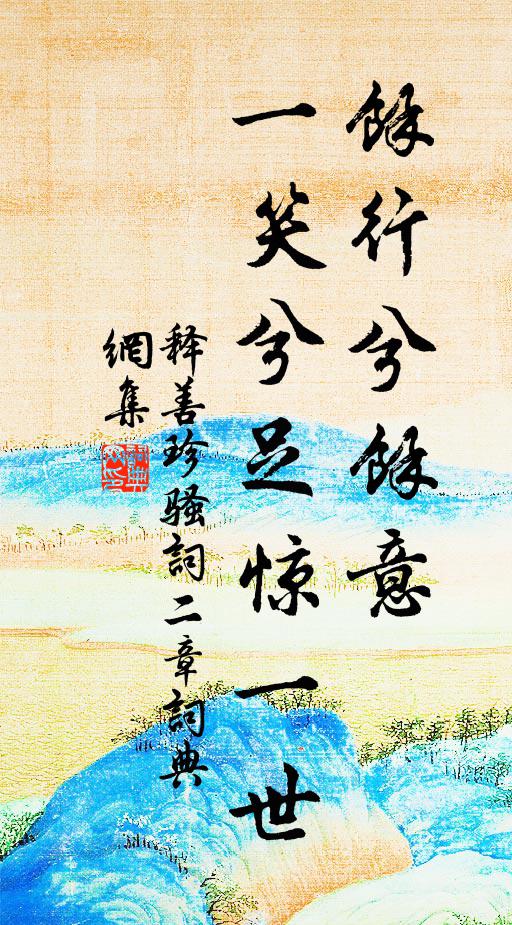 餘行兮餘意
一笑兮足惊一世
释善珍騷詞二章詞典
網集